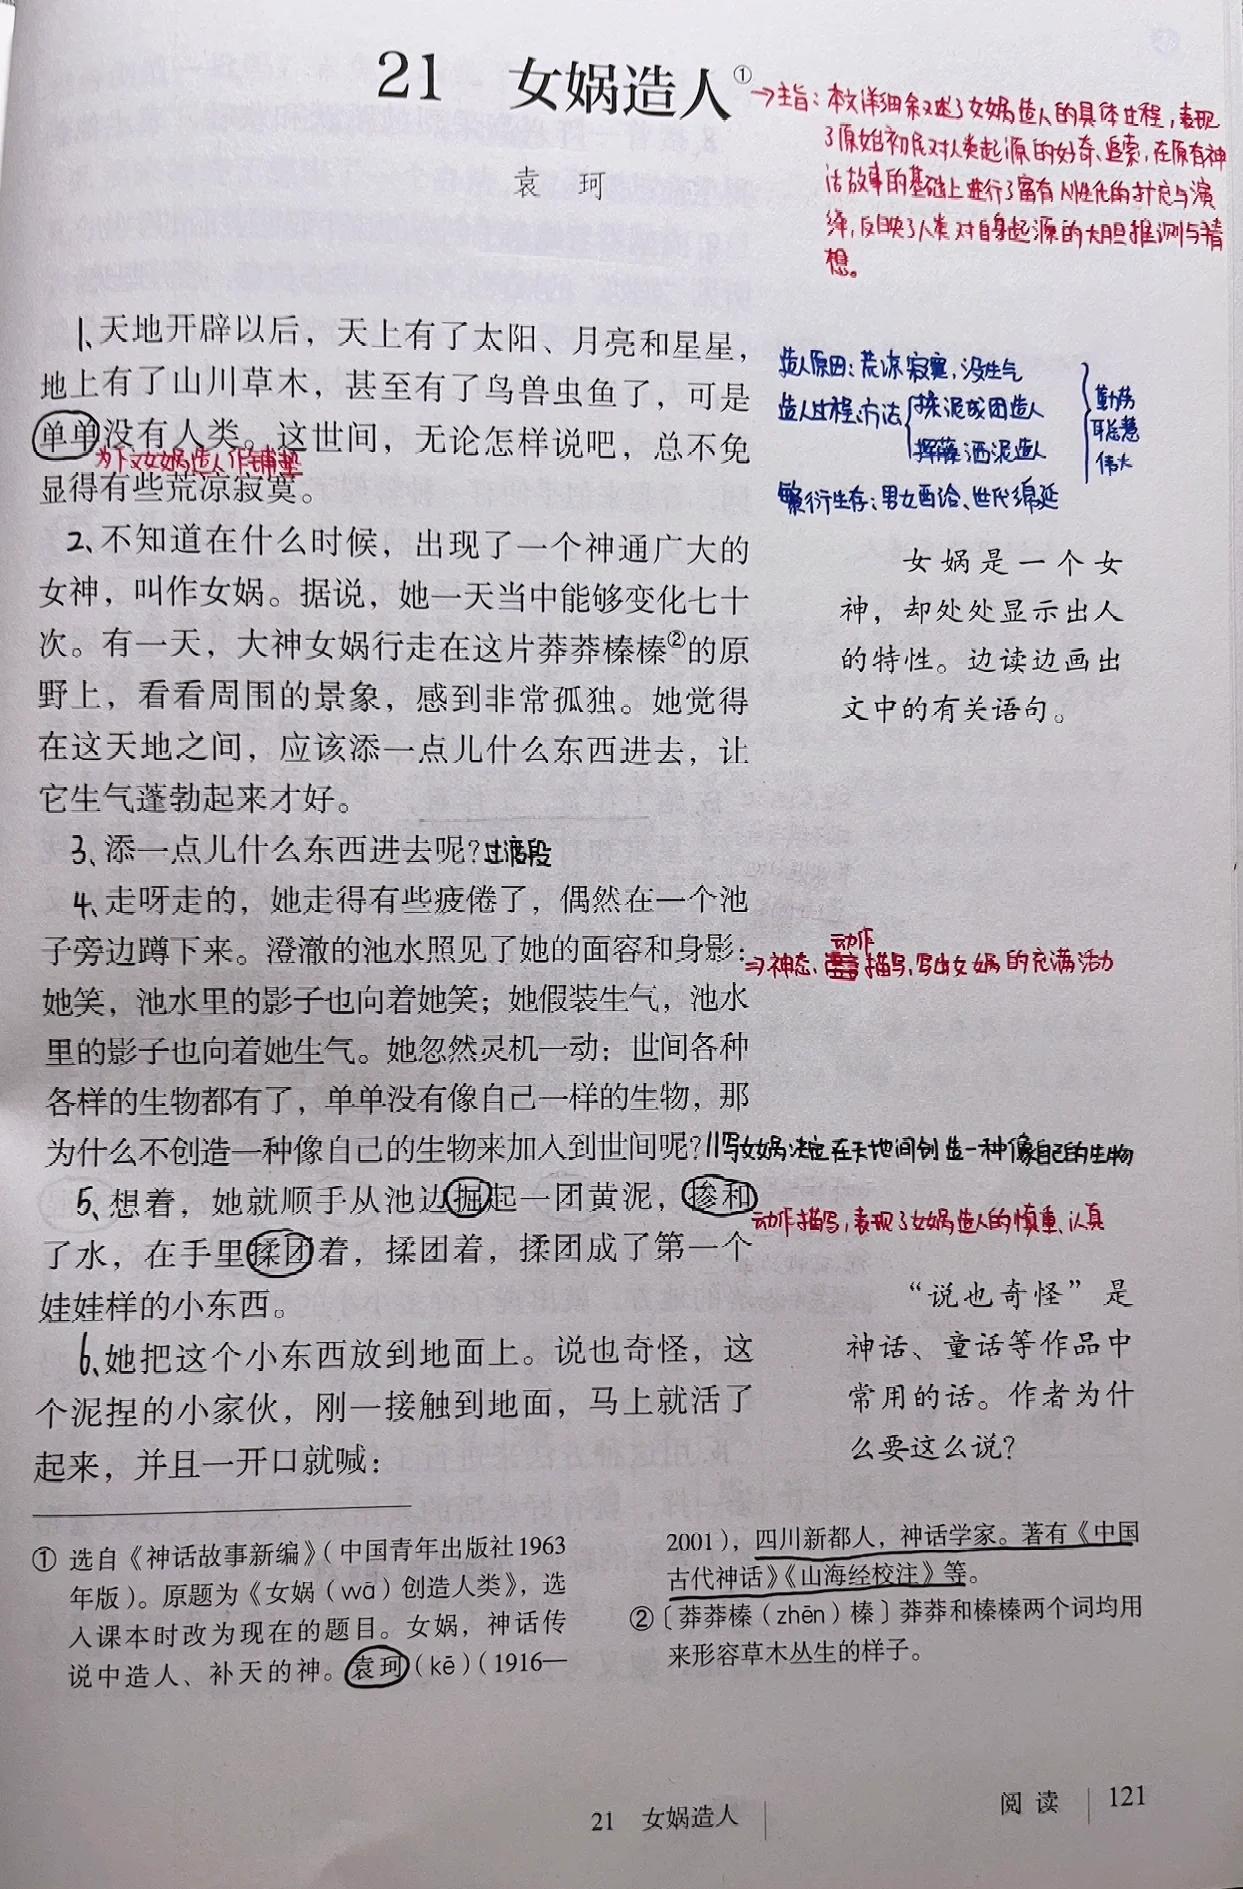 21 女娲造人①
→主旨：本文详细叙述了女娲造人的具体过程，表现
了原始初民对人类起源的好奇、追索，在原有神
话故事的基础上进行了富有人性化的扩充与演
绎，反映了人类对自身起源的大胆推测与猜
想。
袁 珂
1、天地开辟以后，天上有了太阳、月亮和星星，
地上有了山川草木，甚至有了鸟兽虫鱼了，可是
单单没有人类。这世间，无论怎样说吧，总不免
为下文女娲造人作铺垫
显得有些荒凉寂寞。
造人原因：荒凉寂寞，没生气
造人过程、方法
揉泥或团造人
挥藤洒泥造人
勤劳
聪慧
伟大
繁衍生存：男女配给、世代绵延
2、不知道在什么时候，出现了一个神通广大的
女神，叫作女娲。据说，她一天当中能够变化七十
次。有一天，大神女娲行走在这片莽莽榛榛②的原
野上，看看周围的景象，感到非常孤独。她觉得
在这天地之间，应该添一点儿什么东西进去，让
它生气蓬勃起来才好。
女娲是一个女
神，却处处显示出人
的特性。边读边画出
文中的有关语句。
3、添一点儿什么东西进去呢？过渡段
4、走呀走的，她走得有些疲倦了，偶然在一个池
子旁边蹲下来。澄澈的池水照见了她的面容和身影：
动作
→神态、描写，写出女娲的充满活力
她笑，池水里的影子也向着她笑；她假装生气，池水
里的影子也向着她生气。她忽然灵机一动：世间各种
各样的生物都有了，单单没有像自己一样的生物，那
为什么不创造一种像自己的生物来加入到世间呢？//写女娲决定在天地间创造一种像自己的生物
5、想着，她就顺手从池边掘起一团黄泥，掺和
动作描写，表现了女娲造人的慎重、认真
了水，在手里揉团着，揉团着，揉团成了第一个
娃娃样的小东西。
6、她把这个小东西放到地面上。说也奇怪，这
个泥捏的小家伙，刚一接触到地面，马上就活了
起来，并且一开口就喊：
“说也奇怪”是
神话、童话等作品中
常用的话。作者为什
么要这么说？
① 选自《神话故事新编》（中国青年出版社1963
年版）。原题为《女娲（wā）创造人类》，选
入课本时改为现在的题目。女娲，神话传
说中造人、补天的神。袁珂（kē）（1916—
2001），四川新都人，神话学家。著有《中国
古代神话》《山海经校注》等。
②〔莽莽榛（zhēn）榛〕莽莽和榛榛两个词均用
来形容草木丛生的样子。
21 女娲造人
阅读 121